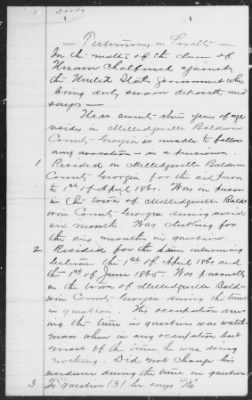 Testimony on Loyalty
In the matter of the claim of
Hiram Chalfinch against
the United States Government who
being duly sworn deposeth and
says —
He is seventy nine years of age
resides in Milledgeville Baldwin
County Georgia is unable to follow
any vocation or
1 Resided in Milledgeville Baldwin
County Georgia for the six
to 1st of April 1861. Was in person
in the town of Milledgeville Bald
win County Georgia during said
six months. Was
the six months in question.
2 Resided for the time intervening
between the 1st of April 1861 and
the 1st of June 1865. Was personally
in the town of Milledgeville Bald-
win County Georgia during the time
in question. His occupation dur
ing the time in question was watch
man when in any occupation but
most of the time he was doing
nothing. Did not change his
residence during the time in question
3 To question (3) he says "No"